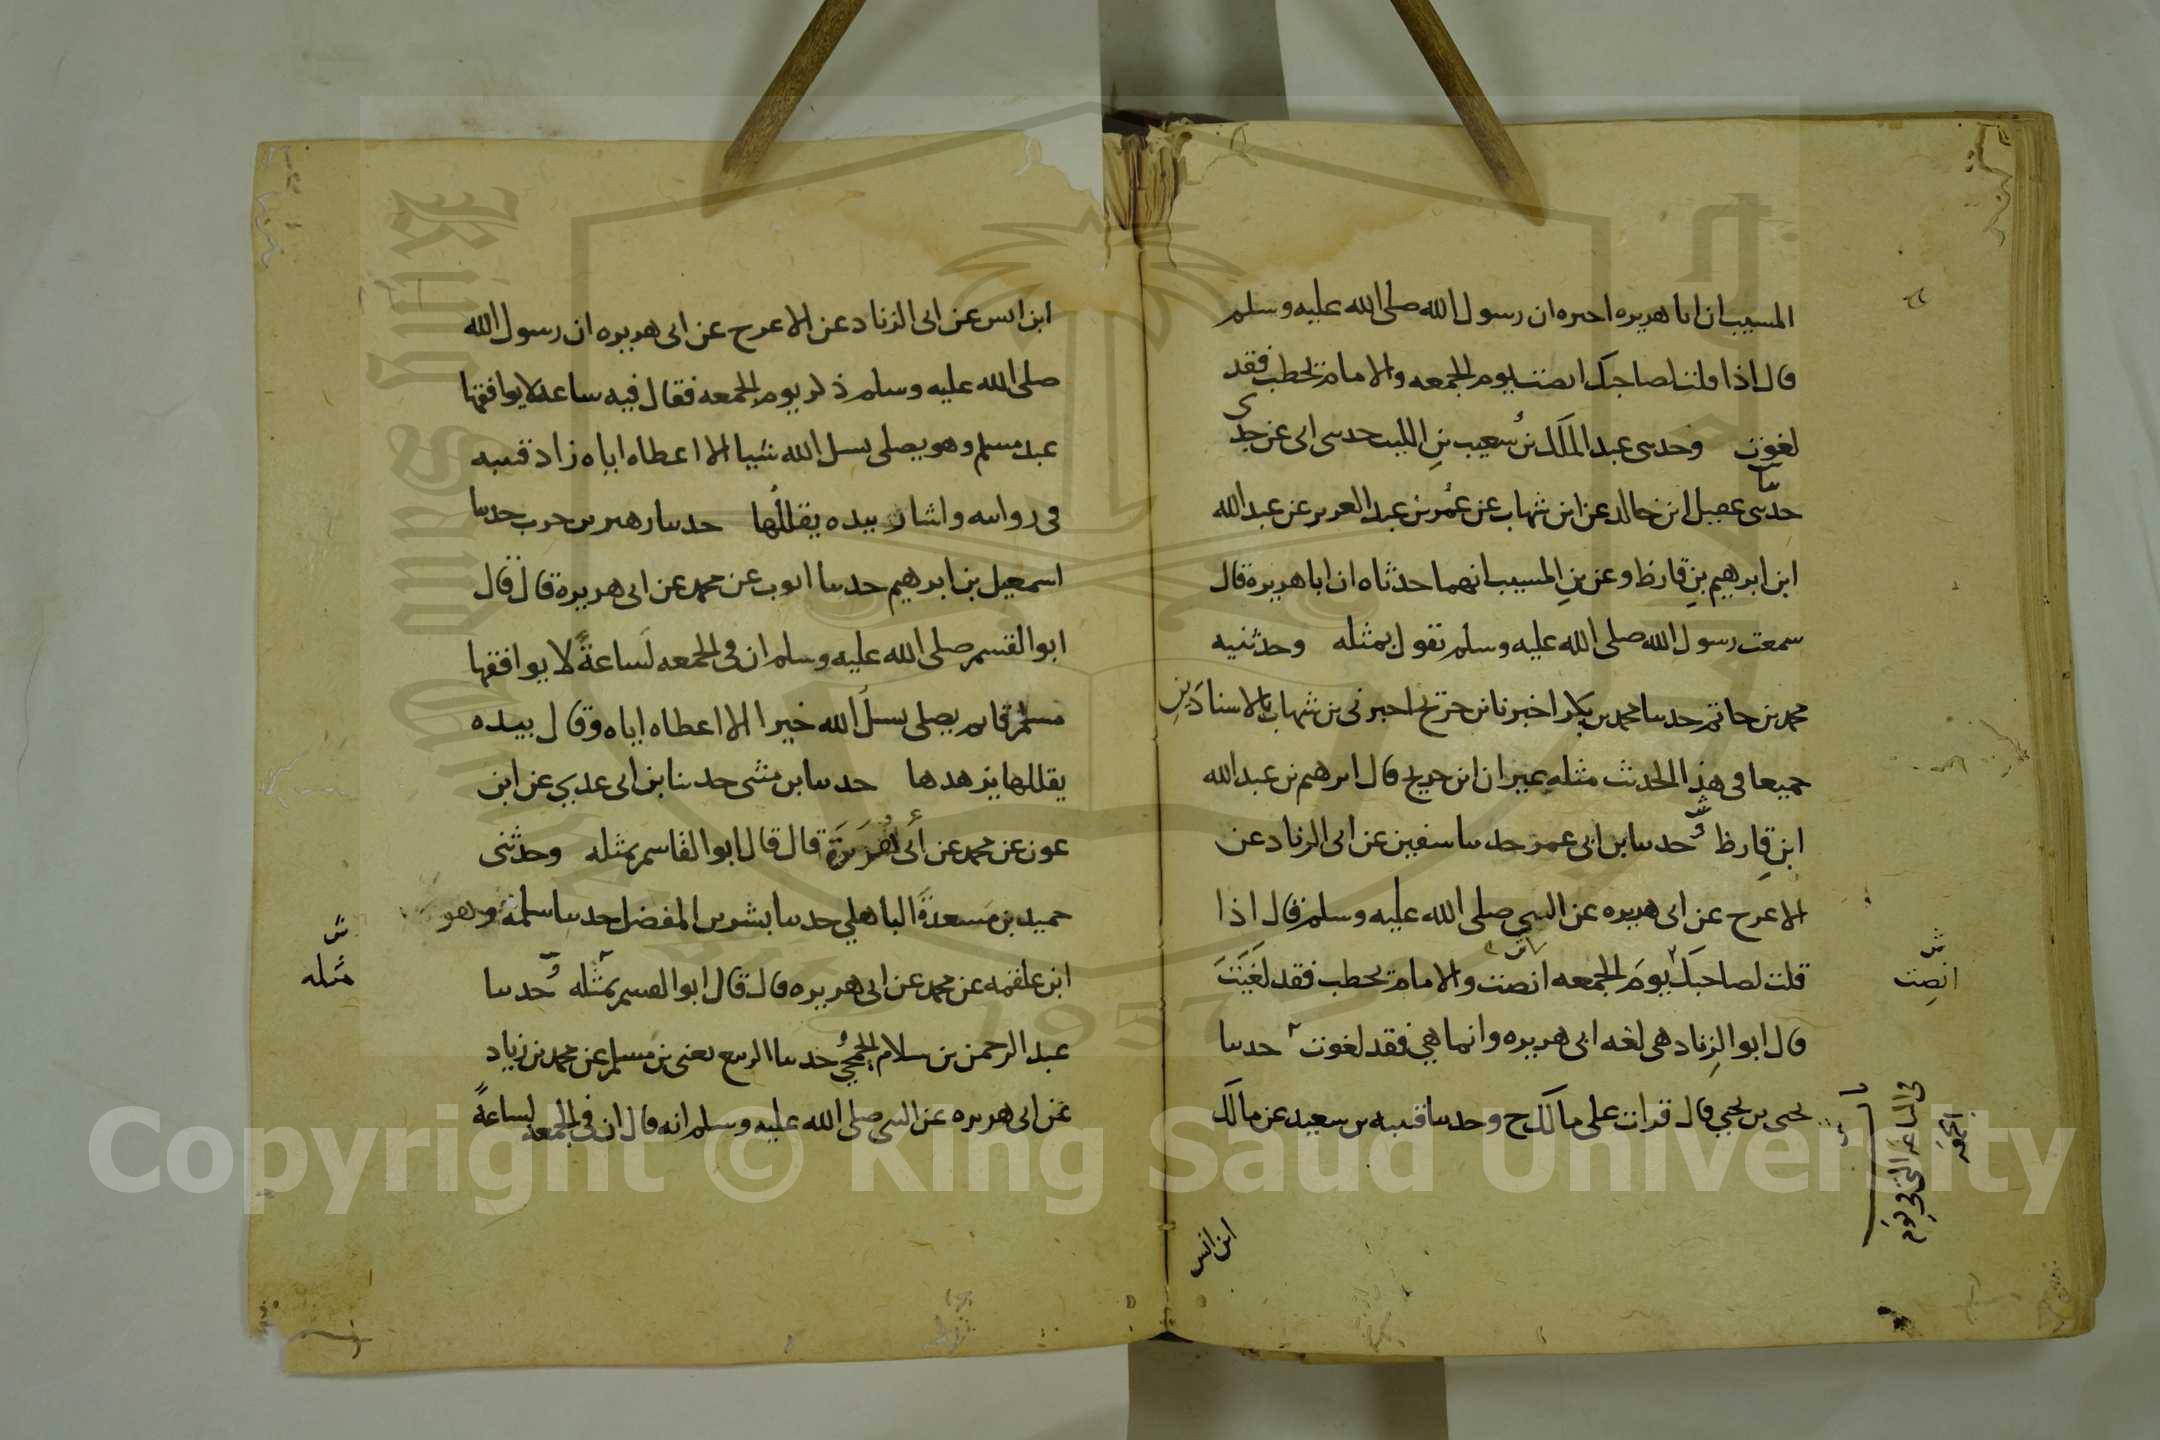 المسيب ان ابا هريره اخبره ان رسول الله صلى الله عليه وسلم
قال اذا قلت لصاحبك انصت يوم الجمعه والامام يخطب فقد
لغوت وحدثنى عبد الملك بن شعيب بنِ الليث حدثنى ابى عن جدى
حدثنى عقيل ابن خالد عن ابن شهاب عن عُمر بن عبد العزيز عن عبد الله
ابن ابرهيم بنِ قارظ وعن بنِ المسيب انهما حدثاه ان ابا هريرة قال
سمعت رسول الله صلى الله عليه وسلم يقول بمثله وحدثنيه
محمد بن حاتم حدثنا محمد بن بكر اخبرنا بن جريج اخبرنى بن شهاب بالاسنادَينِ
جميعا فى هذا الحديث مثله غير ان ابن جريج قال ابرهيم بن عبد الله
ابنِ قارِظ وحدثنا بن ابى عمر حدثنا سفين عن ابى الزناد عن
الاعرج عن ابى هريره عن النبى صلى الله عليه وسلم قال اذا
قلت لصاحبك يومَ الجمعه انصت والامام يخطب فقد لغَيَتَ
انصِت
قال ابو الزِناد هى لغه ابى هريره وانما هى فقد لغوت حدثنا
يحيى بن يحيى قال قرات على مالك ح وحدثنا قتيبه بن سعيد عن مالك
فى الساعه التى فى يوم
الجمعه
ابن انس
ابن انس عن ابى الزناد عن الاعرج عن ابى هريره ان رسول الله
صلى الله عليه وسلم ذكر يوم الجمعه فقال فيه ساعه لا يوافقها
عبد مسلم وهو يصلى يسل الله شيا الا اعطاه اياه زاد قتيبه
فى روايته واشار بيده يقللُها حدثنا زهير بن حرب حدثنا
اسمعيل بن ابرهيم حدثنا ايوب عن محمد عن ابى هريرة قال قال
ابو القسم صلى الله عليه وسلم ان فى الجمعه لَساعةً لا يوافقها
مسلم قايم يصلى يسلُ الله خيرا الا اعطاه اياه وقال بيده
يقللها يزهدها حدثنا بن مثنى حدثنا بن ابى عدي عن ابن
عون عن محمد عن أبى هُرَيرَة قال قال ابو القاسم بمثله وحدثنى
حميد بن مَسعدةَ الباهلي حدثنا بشر بن المفضل حدثنا سلمة وهو
ابن علقمه عن محمد عن ابى هريره قال قال ابو القسم بمثله وحدثنا
مثله
عبد الرحمن بن سلام الجمحيُّ حدثنا الربيع يعنى بن مسلم عن محمد بن زياد
عن ابى هريره عن النبى صلى الله عليه وسلم انه قال ان فى الجمعه لساعةً
Copyright © King Saud University
King Saud University
1957